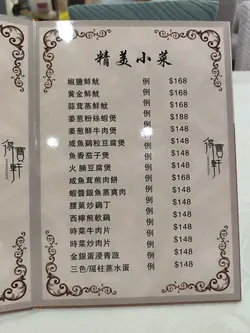 精美小菜
椒鹽鮮魷 例 $168
黃金鮮魷 例 $168
蒜茸蒸鮮魷 例 $168
姜葱粉絲蝦煲 例 $188
姜葱鮮牛肉煲 例 $148
咸魚鷄粒豆腐煲 例 $148
魚香茄子煲 例 $148
火腩豆腐煲 例 $148
咸魚茸煎肉餅 例 $168
蝦醬銀魚蒸爽肉 例 $148
腰菓炒鷄丁 例 $148
西檸煎軟鷄 例 $148
時菜牛肉片 例 $148
時菜炒肉片 例 $148
金銀蛋浸青蔬 例 $148
三色/瑤柱蒸水蛋 例 $148
寶軒
寶軒